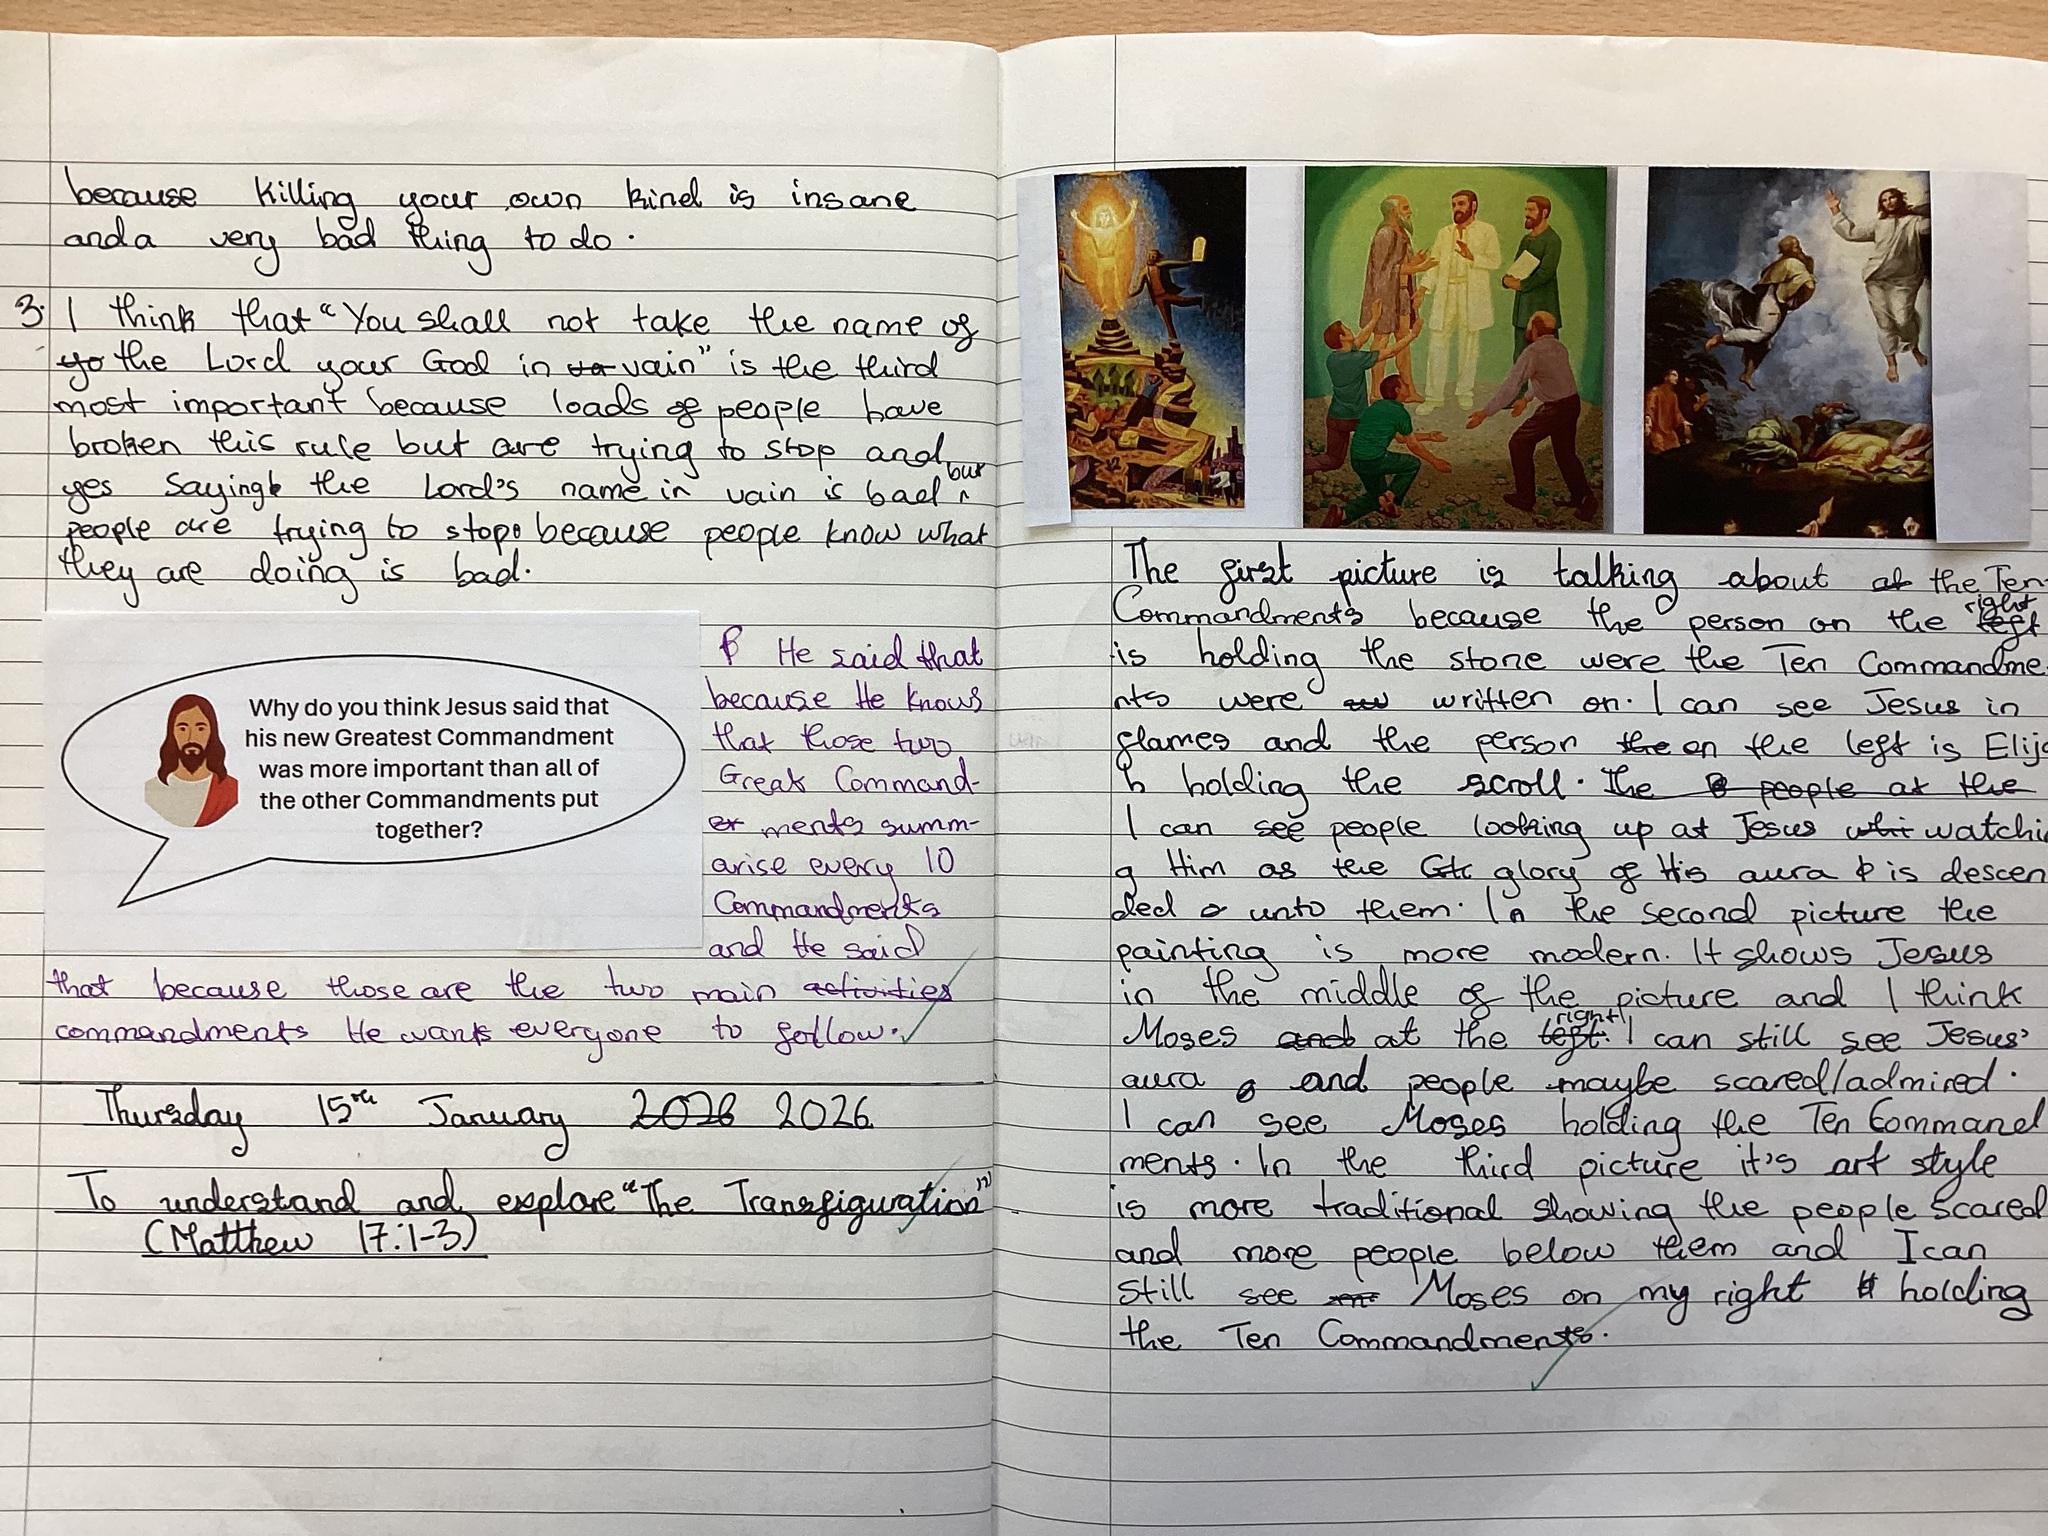 because killing your own kind is insane
and a very bad thing to do.
3. I think that "You shall not take the name of
yo the Lord your God in ta vain" is the third
most important because loads of people have
broken this rule but are trying to stop and
yes saying the Lord's name in vain is bad but
people are trying to stop because people know what
they are doing is bad.
Why do you think Jesus said that
his new Greatest Commandment
was more important than all of
the other Commandments put
together?
He said that
because He knows
that those two
Great Command-
er ments summ-
arise every 10
Commandments
and He said
that because those are the two main activities
commandments He wants everyone to follow.
Thursday 15th January 2026 2026
To understand and explore "The Transfiguration"
(Matthew 17:1-3)
The first picture is talking about at the Ten
Commandments because the person on the left right
is holding the stone were the Ten Commandme
nts were written on. I can see Jesus in
flames and the person the on the left is Elija
h holding the scroll. The people at the
I can see people looking up at Jesus watchin
g Him as the glory of His aura is descen
ded unto them. In the second picture the
painting is more modern. It shows Jesus
in the middle of the picture and I think
Moses and at the left. right I can still see Jesus'
aura and people maybe scared/admired.
I can see Moses holding the Ten Command
ments. In the third picture it's art style
is more traditional showing the people scared
and more people below them and I can
still see Moses on my right holding
the Ten Commandments.